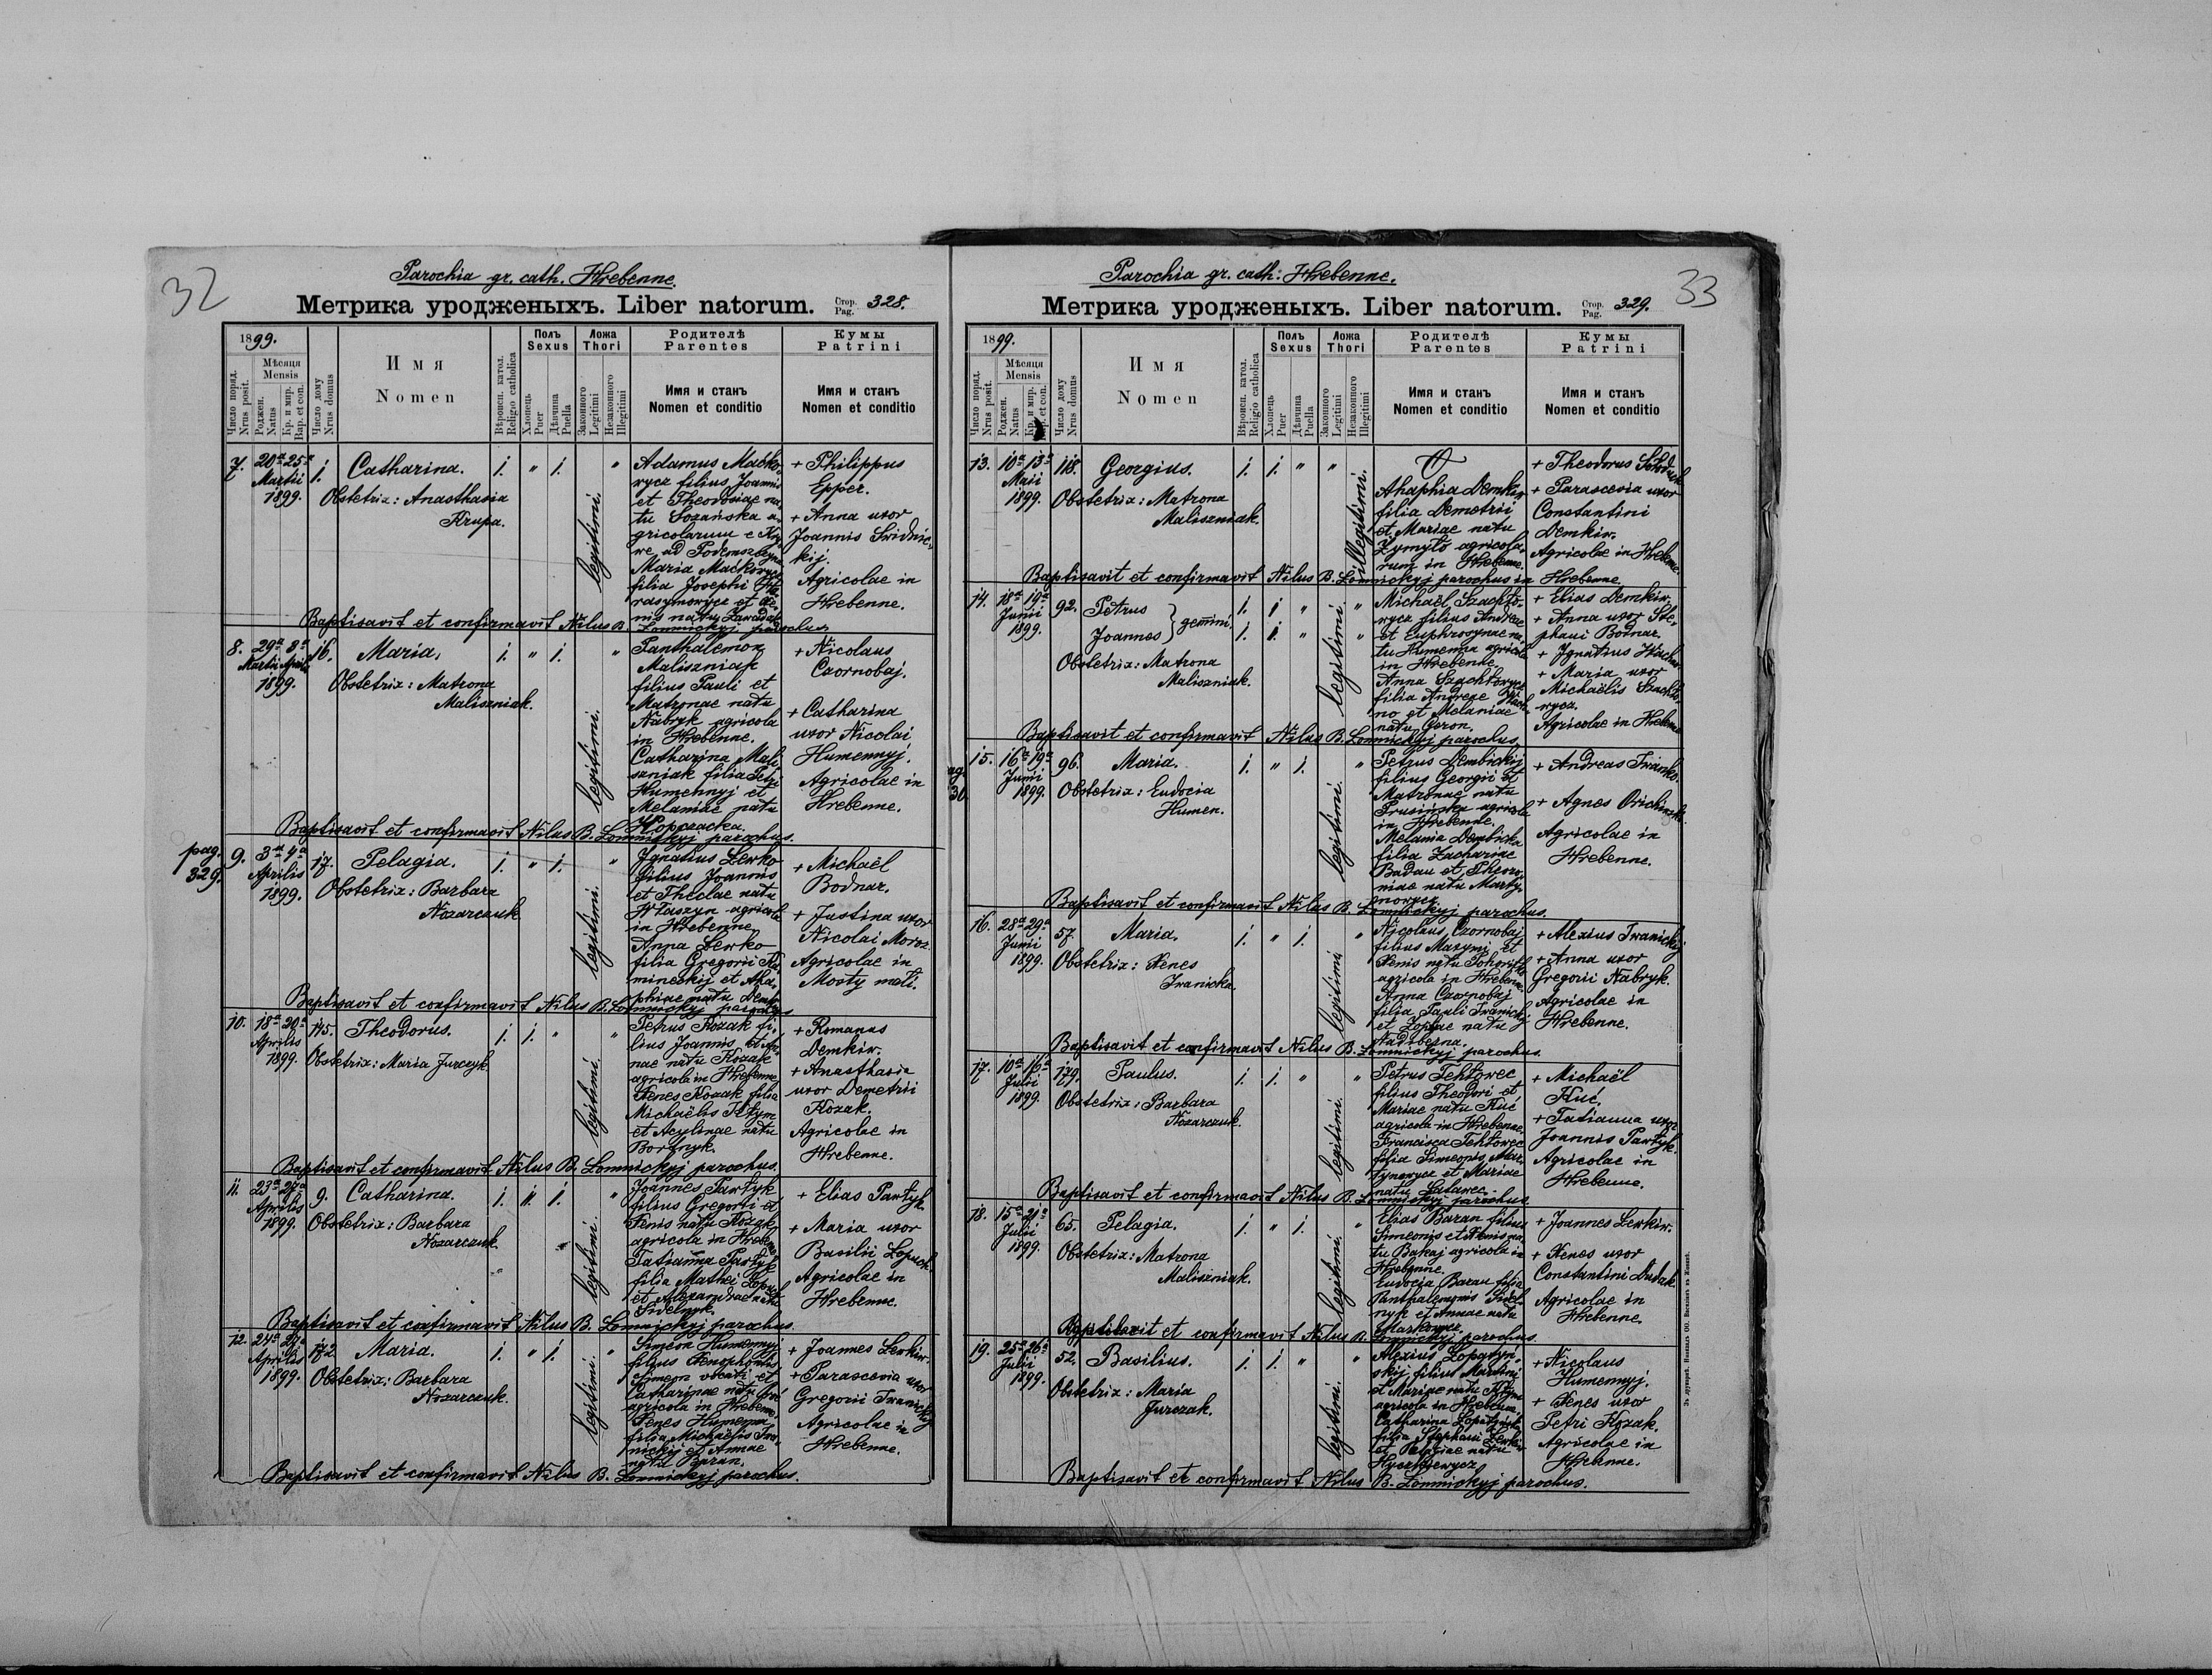 32
Parochia gr. cath. Hrebenne.
Метрика уродженыхъ. Liber natorum. Стор. Pag. 328.
1899.
Число поряд. Nrus posit.
Мѣсяця Mensis
Роджен. Natus
Кр. и мир. Bap. et con.
Число дому Nrus domus
Имя
Nomen
Вѣроисп. катол. Religio catholica
Полъ Sexus
Хлопець Puer
Дѣвчина Puella
Ложа Thori
Законного Legitimi
Незаконного Illegitimi
Родителѣ
Parentes
Имя и станъ
Nomen et conditio
Кумы
Patrini
Имя и станъ
Nomen et conditio
7. 20a 25a Martii 1899. 1. Catharina. 1. " 1. legitimi. "
Obstetrix: Anasthasia
Krupa.
Adamus Maćko-
rycz filius Joannis
et Theodosiae na-
tu Sozańska a-
gricolarum e
ad
Maria
filia Josephi
et
natu
+ Philippus
Epper.
+ Anna uxor
Joannis Swidnic-
kij.
Agricolae in
Hrebenne.
Baptisavit et confirmavit Nilus B. Lomnickyj parochus
8. 29a Martii 8a Aprilis 1899. 16. Maria. 1. " 1. legitimi. "
Obstetrix: Matrona
Maliszniak.
Panthalemon
Maliszniak
filius Pauli et
Matronae natu
Nabryk agricola
in Hrebenne.
Catharina Mali-
szniak filia Petri
Humennyj et
Melaniae natu
Kopczacka.
+ Nicolaus
Czornobaj.
+ Catharina
uxor Nicolai
Humennyj.
Agricolae in
Hrebenne.
Baptisavit et confirmavit Nilus B. Lomnickyj parochus.
pag.
329.
9. 3a 4a Aprilis 1899. 17. Pelagia. 1. " 1. legitimi. "
Obstetrix: Barbara
Nozarczuk
Ignatius Lewko
filius Joannis
et Theclae natu
Właszyn agricola
in Hrebenne
Anna Lewko
filia Gregorii Ka-
mineckij et Aha-
phiae natu
+ Michaël
Bodnar.
+ Justina uxor
Nicolai Moroz.
Agricolae in
Mosty małi.
Baptisavit et confirmavit Nilus B. Lomnickyj parochus
10. 18a 20a Aprilis 1899. 115. Theodorus. 1. 1. " legitimi. "
Obstetrix: Maria Jurczyk
Petrus Kozak fi-
lius Joannis et An-
nae natu Kozak
agricola in Hrebenne
Xenes Kozak filia
Michaëlis
et Acylinae natu
Bortnyk.
+ Romanus
Demkiw.
+ Anasthasia
uxor Demetrii
Kozak.
Agricolae in
Hrebenne.
Baptisavit et confirmavit Nilus B. Lomnickyj parochus.
11. 23a 27a Aprilis 1899. 9. Catharina. 1. " 1. legitimi. "
Obstetrix: Barbara
Nozarczuk.
Joannes Partyk
filius Gregorii et
Xenis natu Kozak
agricola in Hrebenne
Tatianna Partyk
filia Mathei
et Alexandrae natu
Sidelnyk.
+ Elias Partyk.
+ Maria uxor
Basilii Lopuch.
Agricolae in
Hrebenne.
Baptisavit et confirmavit Nilus B. Lomnickyj parochus.
12. 24a 27a Aprilis 1899. 172. Maria. 1. " 1. legitimi. "
Obstetrix: Barbara
Nozarczuk.
Simeon Humennyj
filius Xenophontis
Simeon vocati et
Catharinae natu
agricola in Hrebenne
Xenes Humenna
filia Michaëlis Iwa-
nickij et Annae
natu Baran.
+ Joannes Lewkiw.
+ Parascevia uxor
Gregorii Iwanickij
Agricolae in
Hrebenne.
Baptisavit et confirmavit Nilus B. Lomnickyj parochus.
33
Parochia gr. cath: Hrebenne.
Метрика уродженыхъ. Liber natorum. Стор. Pag. 329.
1899.
Число поряд. Nrus posit.
Мѣсяця Mensis
Роджен. Natus
Кр. и мир. Bap. et con.
Число дому Nrus domus
Имя
Nomen
Вѣроисп. катол. Religio catholica
Полъ Sexus
Хлопець Puer
Дѣвчина Puella
Ложа Thori
Законного Legitimi
Незаконного Illegitimi
Родителѣ
Parentes
Имя и станъ
Nomen et conditio
Кумы
Patrini
Имя и станъ
Nomen et conditio
13. 10a 13a Maii 1899. 118. Georgius. 1. 1. " " illegitimi.
Obstetrix: Matrona
Maliszniak.
Ahaphia Demkiw
filia Demetrii
et Mariae natu
Zymyło agricola-
rum in Hrebenne.
+ Theodorus
+ Parascevia uxor
Constantini
Demkiw.
Agricolae in Hrebenne.
Baptisavit et confirmavit Nilus B. Lomnickyj parochus in Hrebenne.
14. 18a 19a Junii 1899. 92. Petrus } gemini. 1. 1. " legitimi. "
Joannes 1. 1. " "
Obstetrix: Matrona
Maliszniak.
Michaël Szachto-
rycz filius Andreae
et Euphrosynae na-
tu Humenna agricola
in Hrebenne.
Anna Szachtorycz
filia Andreae
no et Melaniae
natu Goron.
+ Elias Demkiw.
+ Anna uxor Ste-
phani Bodnar.
+ Ignatius
+ Maria uxor
Michaëlis Szachto-
rycz.
Agricolae in Hrebenne
Baptisavit et confirmavit Nilus B. Lomnickyj parochus.
15. 16a 19a Junii 1899. 96. Maria. 1. " 1. legitimi. "
Obstetrix: Eudocia
Humen.
Petrus Dembickij
filius Georgii et
Matronae natu
Prusińska agricola
in Hrebenne.
Melania Dembicka
filia Zachariae
Badau et Theoro-
niae natu Marty-
norycz
+ Andreas Iwanko.
+ Agnes
Agricolae in
Hrebenne.
Baptisavit et confirmavit Nilus B. Lomnickyj parochus.
16. 28a 29a Junii 1899. 57. Maria. 1. " 1. legitimi "
Obstetrix: Xenes
Iwanicka.
Nicolaus Czornobaj
filius Maxymi et
Xenis natu
agricola in Hrebenne.
Anna Czornobaj
filia Pauli Iwanickij
et Zophiae natu
+ Alexius Iwanickij
+ Anna uxor
Gregorii Nabryk.
Agricolae in
Hrebenne.
Baptisavit et confirmavit Nilus B. Lomnickyj parochus.
17. 10a 16a Julii 1899. 179. Paulus. 1. 1. " legitimi. "
Obstetrix: Barbara
Nozarczuk.
Petrus Tehtowec
filius Theodori et
Mariae natu Kuć
agricola in Hrebenne.
Francisca Tehtowec
filia Simeonis Mar-
tynorycz et Mariae
natu
+ Michaël
Kuć.
+ Tatianna uxor
Joannis Partyk.
Agricolae in
Hrebenne.
Baptisavit et confirmavit Nilus B. Lomnickyj parochus.
18. 15a 21a Julii 1899. 65. Pelagia. 1. " 1. legitimi. "
Obstetrix: Matrona
Maliszniak.
Elias Baran filius
Simeonis et Xenis na-
tu Bakaj agricola in
Hrebenne.
Eudocia Baran filia
Panthalemonis Sidel-
nyk et Annae natu
+ Joannes Lewkiw.
+ Xenes uxor
Constantini Dudak.
Agricolae in
Hrebenne.
Baptisavit et confirmavit Nilus B. Lomnickyj parochus.
19. 25a 26a Julii 1899. 52. Basilius. 1. 1. " legitimi. "
Obstetrix: Maria
Jurczak.
Alexius Lopatyn-
skij filius Martini
et Mariae natu
agricola in Hrebenne.
Catharina
filia Stephani
et Pelagiae natu
+ Nicolaus
Humennyj.
+ Xenes uxor
Petri Kozak.
Agricolae in
Hrebenne.
Baptisavit et confirmavit Nilus B. Lomnickyj parochus.